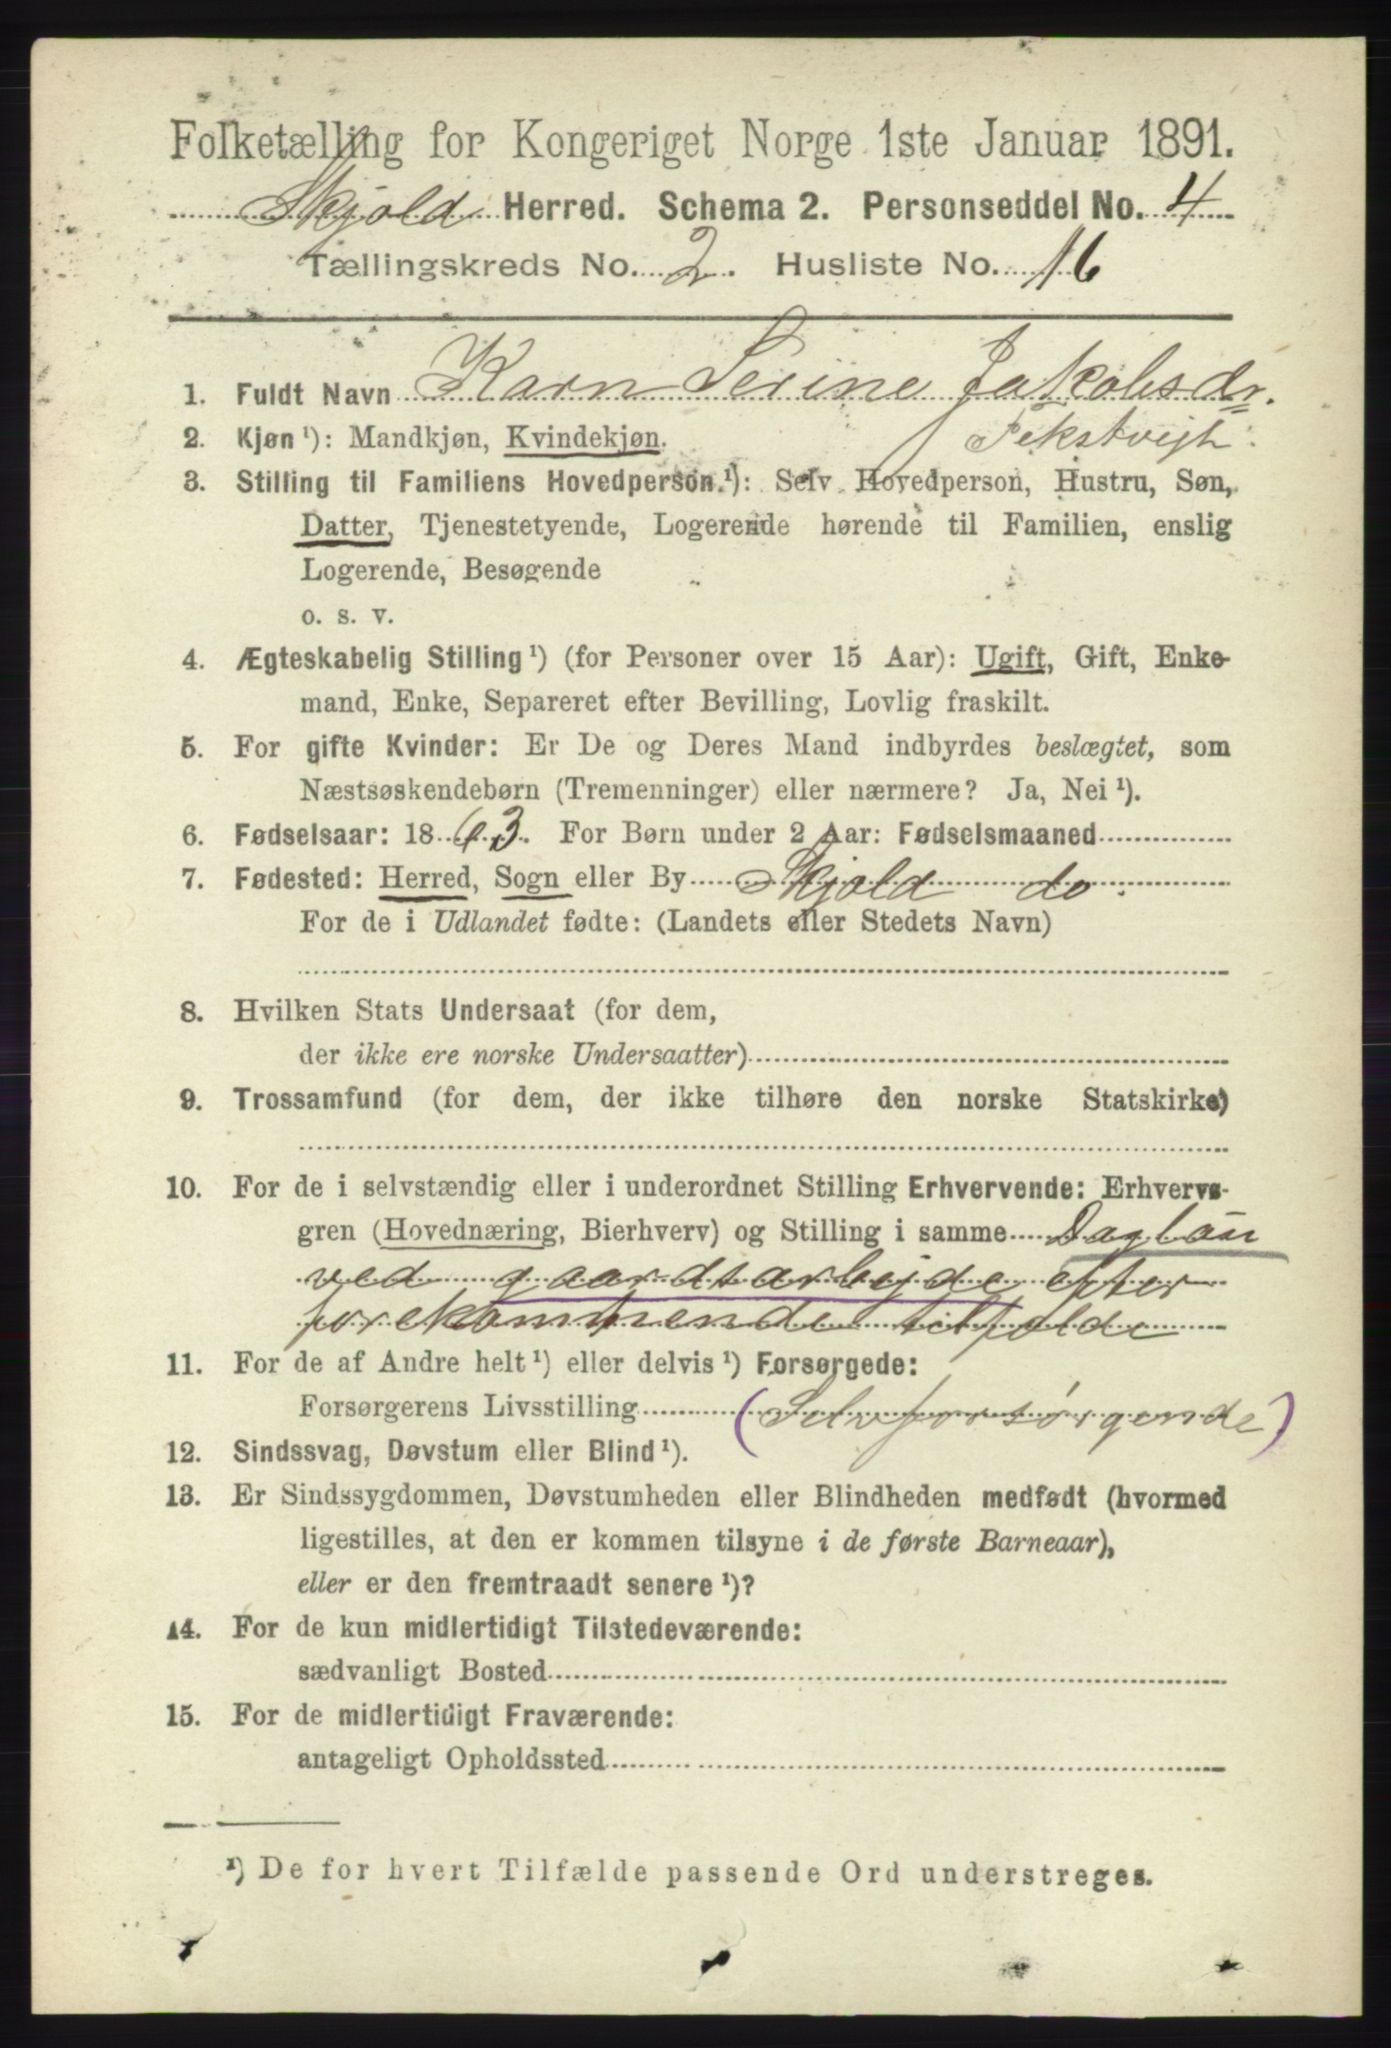 Folketælling for Kongeriget Norge 1ste Januar 1891.
Skjold Herred. Schema 2. Personseddel No. 4
Tællingskreds No. 2. Husliste No. 16
1. Fuldt Navn Karn Serine Jakobsdr.
2. Kjøn ¹): Mandkjøn, Kvindekjøn.
3. Stilling til Familiens Hovedperson ¹): Selv Hovedperson, Hustru, Søn,
Datter, Tjenestetyende, Logerende hørende til Familien, enslig
Logerende, Besøgende
o. s. v.
4. Ægteskabelig Stilling ¹) (for Personer over 15 Aar): Ugift, Gift, Enke-
mand, Enke, Separeret efter Bevilling, Lovlig fraskilt.
5. For gifte Kvinder: Er De og Deres Mand indbyrdes beslægtet, som
Næstsøskendebørn (Tremenninger) eller nærmere? Ja, Nei ¹).
6. Fødselsaar: 1863. For Børn under 2 Aar: Fødselsmaaned
7. Fødested: Herred, Sogn eller By Skjold do.
For de i Udlandet fødte: (Landets eller Stedets Navn)
8. Hvilken Stats Undersaat (for dem,
der ikke ere norske Undersaatter)
9. Trossamfund (for dem, der ikke tilhøre den norske Statskirke)
10. For de i selvstændig eller i underordnet Stilling Erhvervende: Erhvervs-
gren (Hovednæring, Bierhverv) og Stilling i samme Dagløn
ved gaardsarbejde efter
forekommende tilfølde
11. For de af Andre helt ¹) eller delvis ¹) Forsørgede:
Forsørgerens Livsstilling (Selvforsørgende)
12. Sindssvag, Døvstum eller Blind ¹).
13. Er Sindssygdommen, Døvstumheden eller Blindheden medfødt (hvormed
ligestilles, at den er kommen tilsyne i de første Barneaar),
eller er den fremtraadt senere ¹)?
14. For de kun midlertidigt Tilstedeværende:
sædvanligt Bosted
15. For de midlertidigt Fraværende:
antageligt Opholdssted
¹) De for hvert Tilfælde passende Ord understreges.